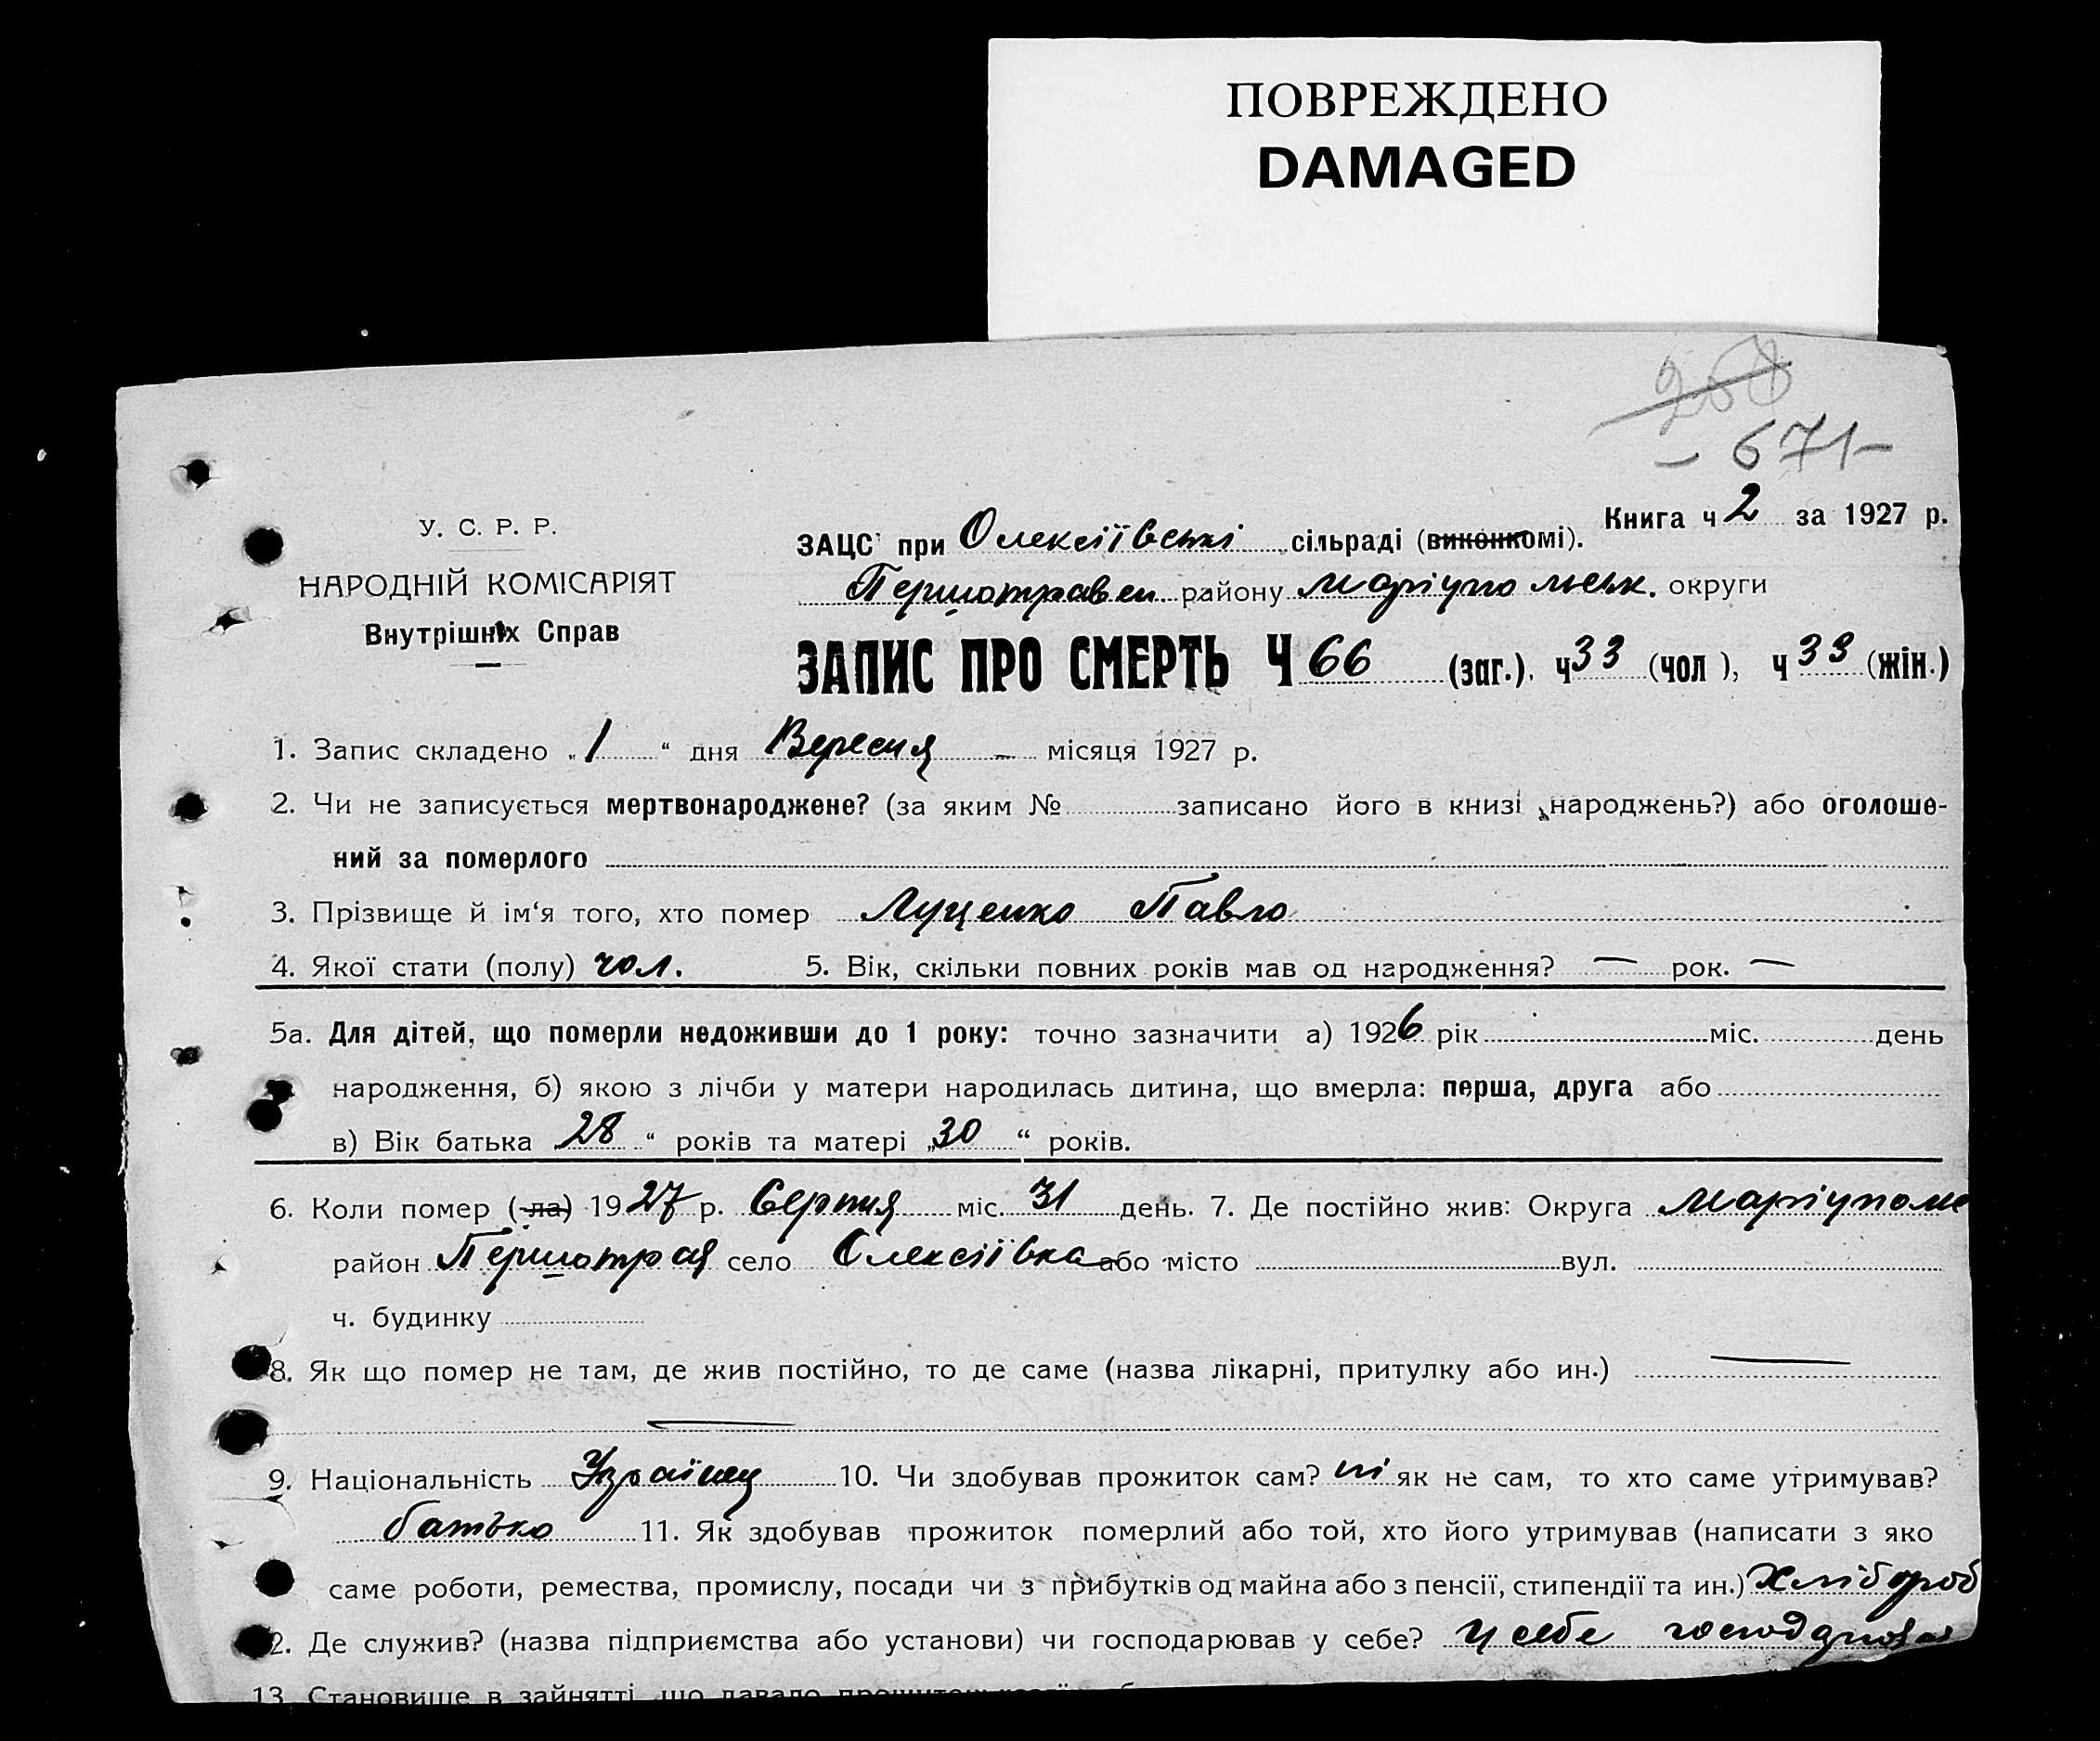 ПОВРЕЖДЕНО
DAMAGED
268
– 671 –
Книга ч 2 за 1927 р.
У. С. Р. Р.
НАРОДНІЙ КОМІСАРІЯТ
Внутрішніх Справ
ЗАЦС при Олексіївські сільраді (виконкомі).
Першотравен. району Маріупольськ. округи
ЗАПИС ПРО СМЕРТЬ Ч 66 (заг.). ч 33 (чол ), ч 33 (жін.)
1. Запис складено „ 1 “ дня Вересня – місяця 1927 р.
2. Чи не записується мертвонароджене? (за яким № записано його в книзі народжень?) або оголоше-
ний за померлого
3. Прізвище й ім‘я того, хто помер Луценко Павло
4. Якої стати (полу) чол. 5. Вік, скільки повних років мав од народження? — рок. —
5а. Для дітей, що померли недоживши до 1 року: точно зазначити а) 1926 рік міс. день
народження, б) якою з лічби у матери народилась дитина, що вмерла: перша, друга або
в) Вік батька „28“ років та матері „30“ років.
6. Коли помер (-ла) 1927 р. Серпня міс. 31 день. 7. Де постійно жив: Округа Маріупол
район Першотрая село Олексіївка або місто вул.
ч. будинку
8. Як що помер не там, де жив постійно, то де саме (назва лікарні, притулку або ин.) —
—
9. Національність Українец 10. Чи здобував прожиток сам? ні як не сам, то хто саме утримував?
батько 11. Як здобував прожиток померлий або той, хто його утримував (написати з яко
саме роботи, ремества, промислу, посади чи з прибутків од майна або з пенсії, стипендії та ин.) Хлібороб
2. Де служив? (назва підприємства або установи) чи господарював у себе? у себе
13. Становище в зайнятті, що давало прожиток